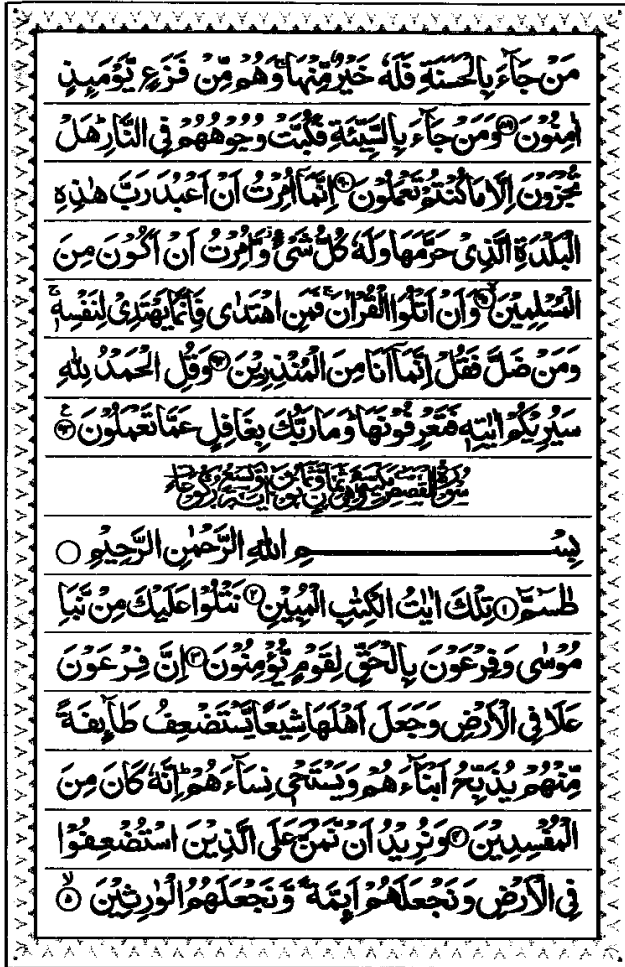 مَنْ جَآءَ بِالْحَسَنَةِ فَلَهٗ خَيْرٌ مِّنْهَا ۚ وَهُمْ مِّنْ فَزَعٍ يَّوْمَىِٕذٍ
اٰمِنُوْنَ ۝۸۹ وَمَنْ جَآءَ بِالسَّيِّئَةِ فَكُبَّتْ وُجُوْهُهُمْ فِى النَّارِ ؕ هَلْ
تُجْزَوْنَ اِلَّا مَا كُنْتُمْ تَعْمَلُوْنَ ۝۹۰ اِنَّمَاۤ اُمِرْتُ اَنْ اَعْبُدَ رَبَّ هٰذِهِ
الْبَلْدَةِ الَّذِىْ حَرَّمَهَا وَلَهٗ كُلُّ شَىْءٍ ؗ وَّاُمِرْتُ اَنْ اَكُوْنَ مِنَ
الْمُسْلِمِيْنَ ۝۹۱ وَاَنْ اَتْلُوَا الْقُرْاٰنَ ۚ فَمَنِ اهْتَدٰى فَاِنَّمَا يَهْتَدِىْ لِنَفْسِهٖ ۚ
وَمَنْ ضَلَّ فَقُلْ اِنَّمَاۤ اَنَا مِنَ الْمُنْذِرِيْنَ ۝۹۲ وَقُلِ الْحَمْدُ لِلّٰهِ
سَيُرِيْكُمْ اٰيٰتِهٖ فَتَعْرِفُوْنَهَا ؕ وَمَا رَبُّكَ بِغَافِلٍ عَمَّا تَعْمَلُوْنَ ۝۹۳
سُوْرَةُ الْقَصَصِ مَكِّيَّةٌ وَّهِىَ ثَمَانٌ وَّثَمَانُوْنَ اٰيَةً وَّتِسْعُ رُكُوْعَاتٍ
بِسْمِ اللّٰهِ الرَّحْمٰنِ الرَّحِيْمِ ۝
طٰسٓمّٓ ۝۱ تِلْكَ اٰيٰتُ الْكِتٰبِ الْمُبِيْنِ ۝۲ نَتْلُوْا عَلَيْكَ مِنْ نَّبَاِ
مُوْسٰى وَفِرْعَوْنَ بِالْحَقِّ لِقَوْمٍ يُّؤْمِنُوْنَ ۝۳ اِنَّ فِرْعَوْنَ
عَلَا فِى الْاَرْضِ وَجَعَلَ اَهْلَهَا شِيَعًا يَّسْتَضْعِفُ طَآىِٕفَةً
مِّنْهُمْ يُذَبِّحُ اَبْنَآءَهُمْ وَيَسْتَحْىٖ نِسَآءَهُمْ ؕ اِنَّهٗ كَانَ مِنَ
الْمُفْسِدِيْنَ ۝۴ وَنُرِيْدُ اَنْ نَّمُنَّ عَلَى الَّذِيْنَ اسْتُضْعِفُوْا
فِى الْاَرْضِ وَنَجْعَلَهُمْ اَىِٕمَّةً وَّنَجْعَلَهُمُ الْوٰرِثِيْنَ ۝۵